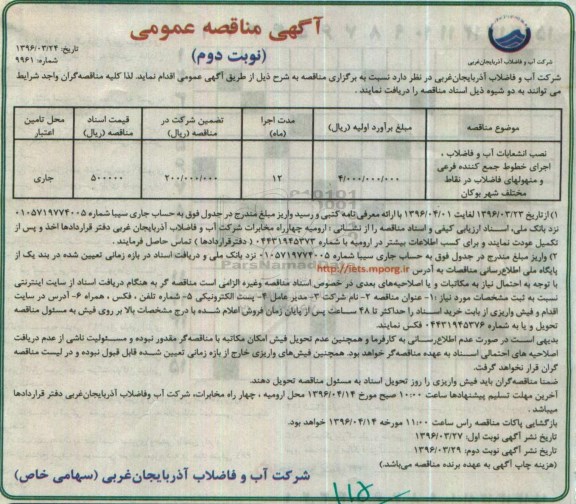 آگهی مناقصه عمومی
(نوبت دوم)
تاریخ: ۱۳۹۶/۰۳/۲۴
شماره: ۹۹۶۱
شرکت آب و فاضلاب آذربایجان‌غربی
شرکت آب و فاضلاب آذربایجان‌غربی در نظر دارد نسبت به برگزاری مناقصه به شرح ذیل از طریق آگهی عمومی اقدام نماید. لذا کلیه مناقصه‌گران واجد شرایط
می توانند به دو شیوه ذیل اسناد مناقصه را دریافت نمایند.
موضوع مناقصه
مبلغ برآورد اولیه (ریال)
مدت اجرا (ماه)
تضمین شرکت در مناقصه (ریال)
قیمت اسناد مناقصه (ریال)
محل تامین اعتبار
نصب انشعابات آب و فاضلاب ، اجرای خطوط جمع کننده فرعی و منهولهای فاضلاب در نقاط مختلف شهر بوکان
۴/۰۰۰/۰۰۰/۰۰۰
۱۲
۲۰۰/۰۰۰/۰۰۰
۵۰۰۰۰۰
جاری
۱) از تاریخ ۱۳۹۶/۰۳/۲۳ لغایت ۱۳۹۶/۰۴/۰۱ با ارائه معرفی نامه کتبی و رسید واریز مبلغ مندرج در جدول فوق به حساب جاری سیبا شماره ۰۱۰۵۷۱۹۷۷۴۰۰۵
نزد بانک ملی، اسناد ارزیابی کیفی و اسناد مناقصه را از نشانی : ارومیه چهارراه مخابرات شرکت آب و فاضلاب آذربایجان غربی دفتر قراردادها اخذ و پس از
تکمیل عودت نمایند و برای کسب اطلاعات بیشتر در ارومیه با شماره ۰۴۴۳۱۹۴۵۳۷۳ (دفتر قراردادها) تماس حاصل فرمایند.
۲) واریز مبلغ مندرج در جدول فوق به حساب جاری سیبا شماره ۰۱۰۵۷۱۹۷۷۴۰۰۵ نزد بانک ملی و دریافت اسناد در بازه زمانی تعیین شده در بند یک از
پایگاه ملی اطلاع‌رسانی مناقصات به آدرس http://iets.mporg.ir
با توجه به احتمال نیاز به مکاتبات و یا اصلاحیه‌های بعدی در خصوص اسناد مناقصه وغیره الزامی است مناقصه گر به هنگام دریافت اسناد از سایت اینترنتی
نسبت به ثبت مشخصات مورد نیاز :۱- عنوان مناقصه ۲- نام شرکت ۳- مدیر عامل ۴- پست الکترونیکی ۵- شماره تلفن ، فکس ، همراه ۶- آدرس در سایت
اقدام و فیش واریزی از بابت خرید اسناد را حداکثر تا ۴۸ ساعت پس از پایان زمان فروش اعلام شده با درج مشخصات بالا بر روی فیش به مسئول مناقصه
تحویل و یا به شماره ۰۴۴۳۱۹۴۵۳۷۶ فکس نمایند.
بدیهی است در صورت عدم اطلاع‌رسانی به کارفرما و همچنین عدم تحویل فیش امکان مکاتبه با مناقصه‌گر مقدور نبوده و مسئولیت ناشی از عدم دریافت
اصلاحیه های احتمالی اسناد به عهده مناقصه‌گر خواهد بود. همچنین فیش‌های واریزی خارج از بازه زمانی تعیین شده قابل قبول نبوده و در لیست مناقصه
گران قرار نخواهد گرفت.
ضمنا مناقصه‌گران باید فیش واریزی را روز تحویل اسناد به مسئول مناقصه تحویل دهند.
آخرین مهلت تسلیم پیشنهادها ساعت ۱۰:۰۰ صبح مورخ ۱۳۹۶/۰۴/۱۴ محل ارومیه ، چهار راه مخابرات، شرکت آب وفاضلاب آذربایجان‌غربی دفتر قراردادها
میباشد .
بازگشایی پاکات مناقصه راس ساعت ۱۱:۰۰ مورخه ۱۳۹۶/۰۴/۱۴ خواهد بود.
تاریخ نشر آگهی نوبت اول: ۱۳۹۶/۰۳/۲۷
تاریخ نشر آگهی نوبت دوم: ۱۳۹۶/۰۳/۲۹
(هزینه چاپ آگهی به عهده برنده مناقصه می‌باشد.)
شرکت آب و فاضلاب آذربایجان‌غربی (سهامی خاص)